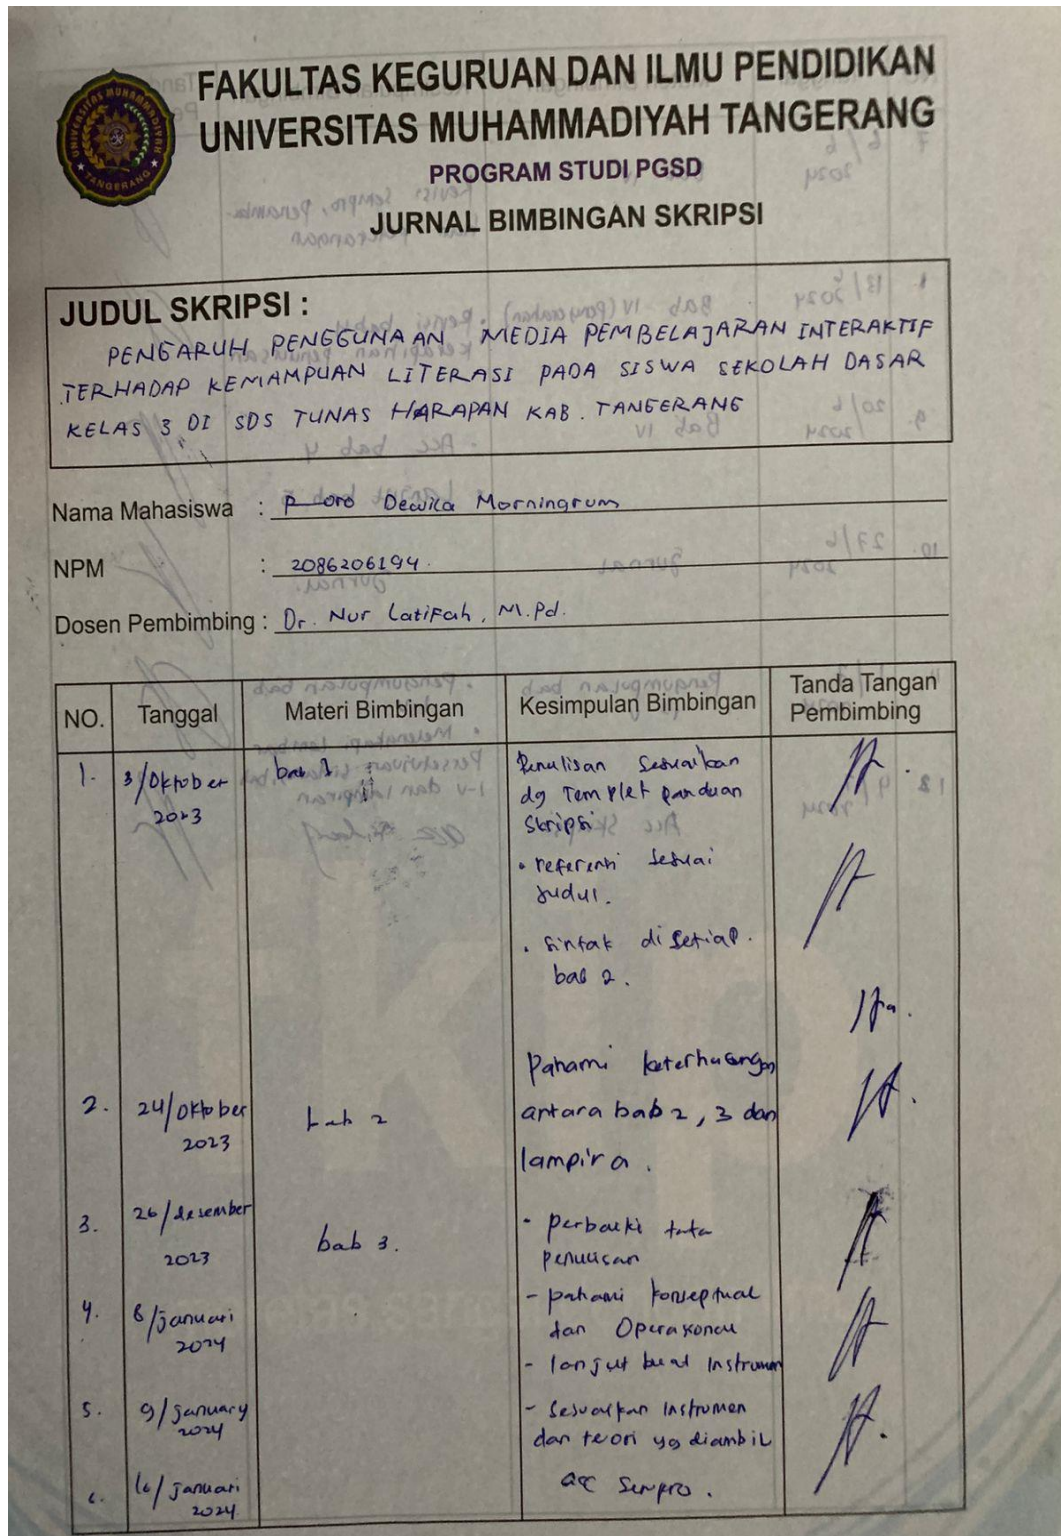 FAKULTAS KEGURUAN DAN ILMU PENDIDIKAN
UNIVERSITAS MUHAMMADIYAH TANGERANG
PROGRAM STUDI PGSD
JURNAL BIMBINGAN SKRIPSI
UNIVERSITAS MUHAMMADIYAH
TANGERANG
JUDUL SKRIPSI :
PENGARUH PENGGUNAAN MEDIA PEMBELAJARAN INTERAKTIF
TERHADAP KEMAMPUAN LITERASI PADA SISWA SEKOLAH DASAR
KELAS 3 DI SDS TUNAS HARAPAN KAB. TANGERANG
Nama Mahasiswa : Roro Dewika Morningrum
NPM : 2086206194.
Dosen Pembimbing : Dr. Nur Latifah, M.Pd.
NO. Tanggal Materi Bimbingan Kesimpulan Bimbingan Tanda Tangan
Pembimbing
1. 3/Oktober bab 1 Penulisan Sesuaikan
2023 dg Templet panduan
Skripsi
• referensi sesuai
judul.
• Sintak di setiap.
bab 2.
Pahami keterhubungan
2. 24/Oktober bab 2 antara bab 2, 3 dan
2023 lampira.
3. 26/desember bab 3. - perbaiki tata
2023 penulisan
4. 8/januari - pahami konseptual
2024 dan Operasional
- lanjut buat Instrumen
5. 9/january - Sesuaikan Instrumen
2024 dan teori yg diambil
6. 16/januari acc Sempro.
2024